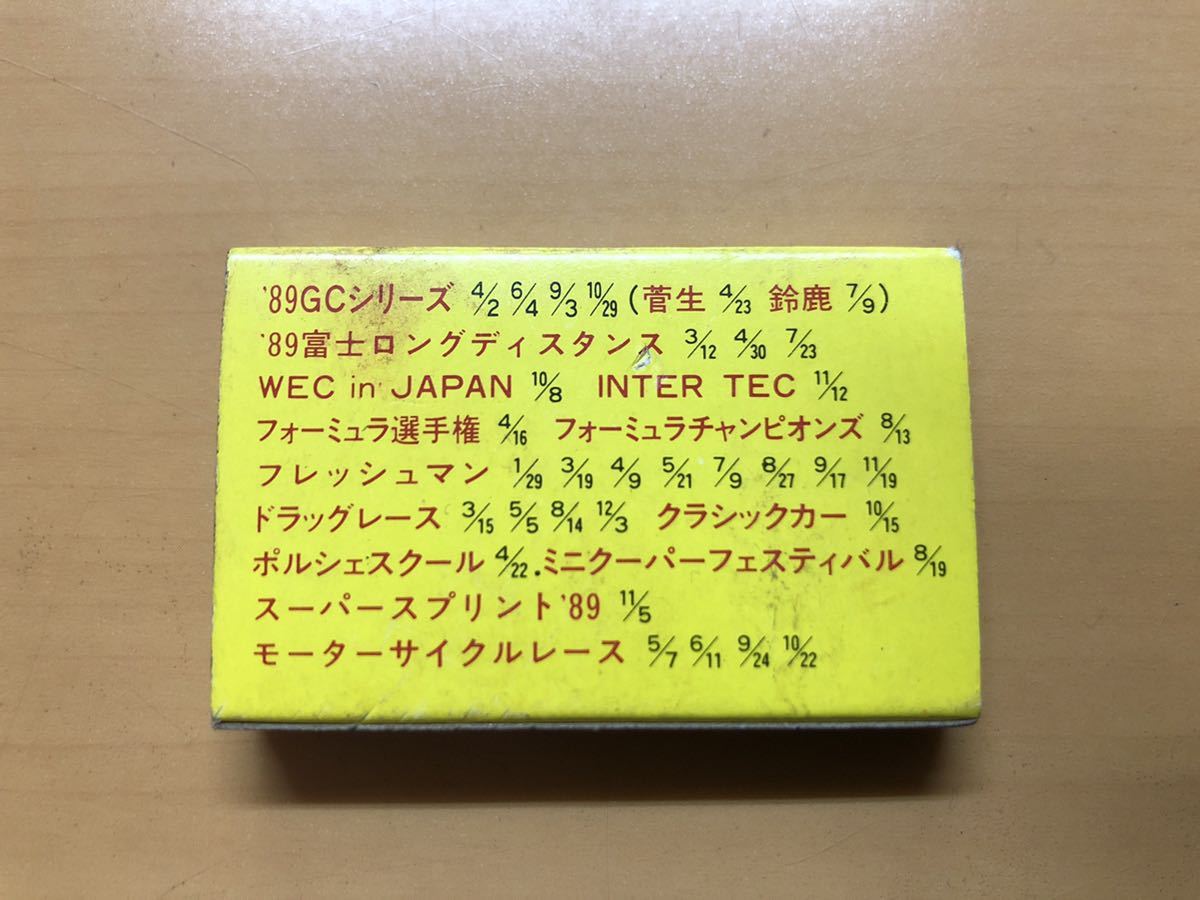 '89GCシリーズ 4/2 6/4 9/3 10/29 (菅生 4/23 鈴鹿 7/9)
'89富士ロングディスタンス 3/12 4/30 7/23
WEC in JAPAN 10/8 INTER TEC 11/12
フォーミュラ選手権 4/16 フォーミュラチャンピオンズ 8/13
フレッシュマン 1/29 3/19 4/9 5/21 7/9 8/27 9/17 11/19
ドラッグレース 3/15 5/5 8/14 12/3 クラシックカー 10/15
ポルシェスクール 4/22.ミニクーパーフェスティバル 8/19
スーパースプリント'89 11/5
モーターサイクルレース 5/7 6/11 9/24 10/22